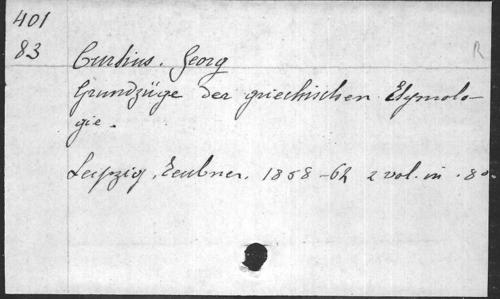 401
83
R
Curtius. Georg
Grundzüge der griechischen Etymolo-
gie.
Leipzig, Teubner. 1858-62 2 vol. in-8°